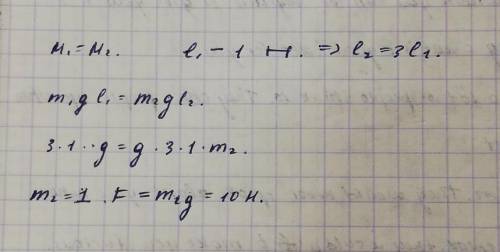 M₁ = M₂.   l₁ – 1 H. => l₂ = 3l₁.
m₁gl₁ = m₂gl₂.
3·1··g = g·3·1·m₂.
m₂ = 1. F = m₂g = 10H.